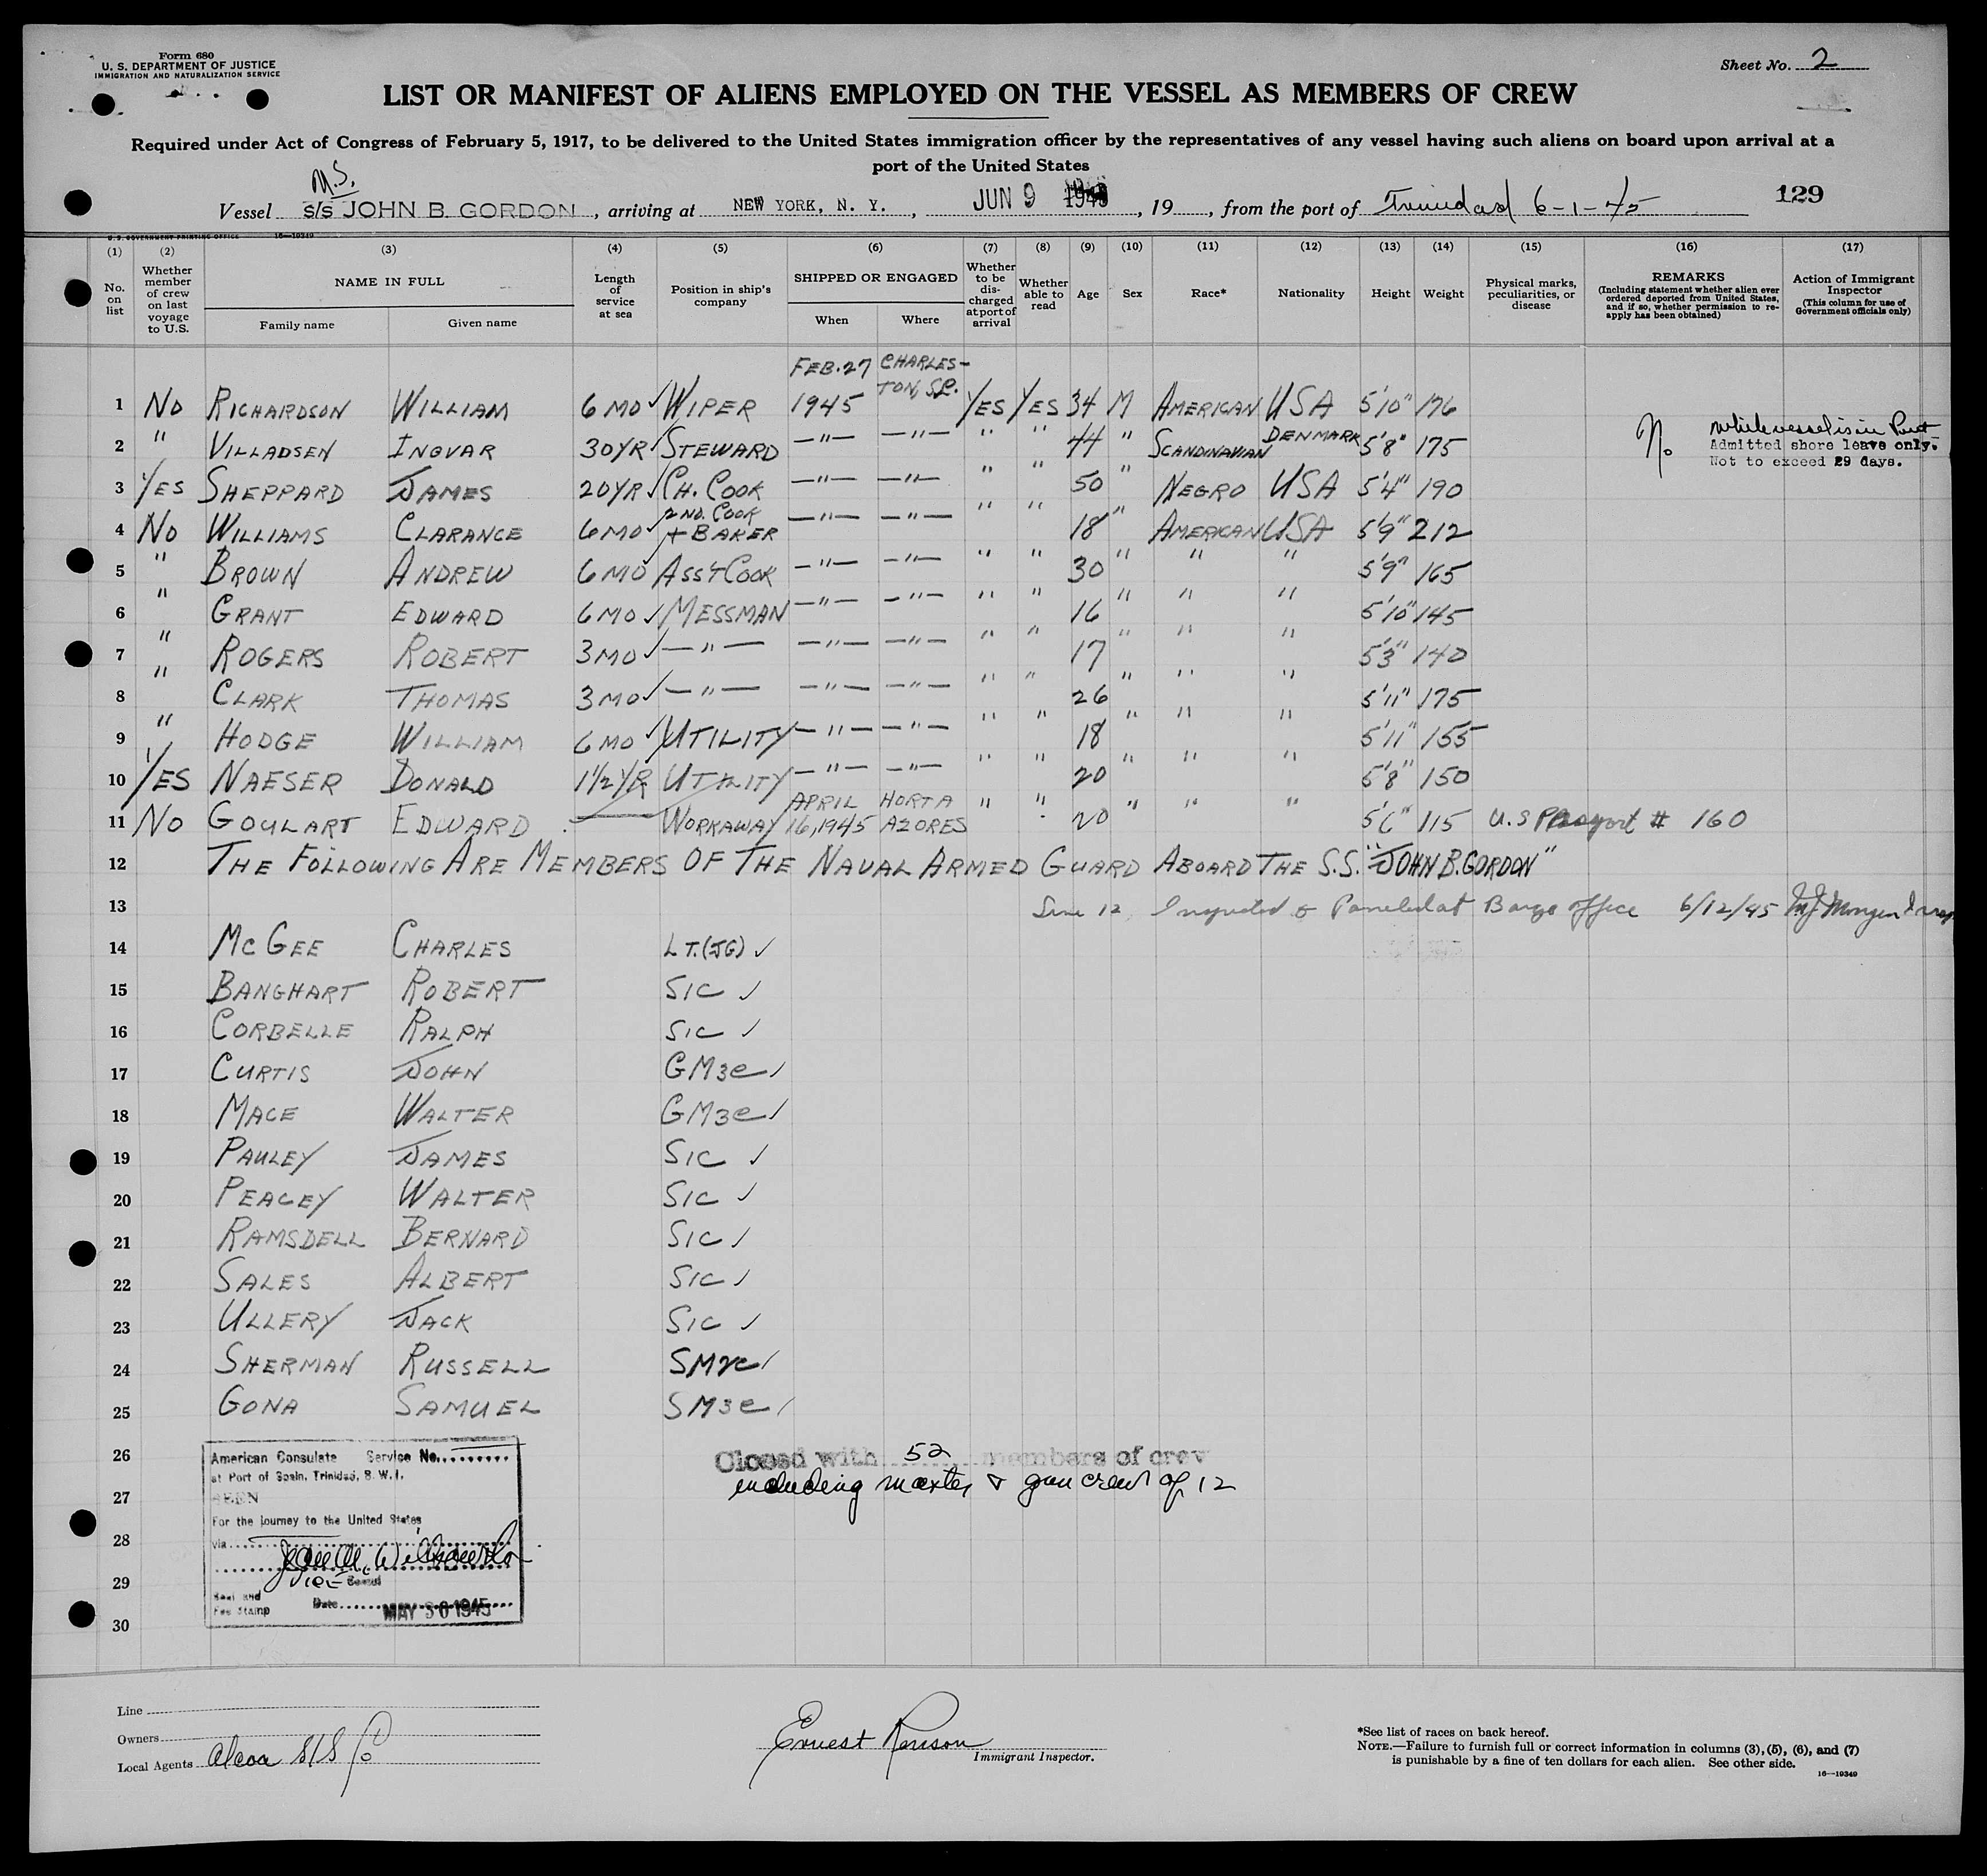 Form 680
U. S. DEPARTMENT OF JUSTICE
IMMIGRATION AND NATURALIZATION SERVICE
Sheet No. 2
LIST OR MANIFEST OF ALIENS EMPLOYED ON THE VESSEL AS MEMBERS OF CREW
Required under Act of Congress of February 5, 1917, to be delivered to the United States immigration officer by the representatives of any vessel having such aliens on board upon arrival at a
port of the United States
M.S.
Vessel S/S JOHN B. GORDON, arriving at NEW YORK, N. Y., JUN 9 1945, 19, from the port of Trinidad 6-1-45 129
U. S. GOVERNMENT PRINTING OFFICE 16—19349
(1) (2) (3) (4) (5) (6) (7) (8) (9) (10) (11) (12) (13) (14) (15) (16) (17)
No. on list Whether member of crew on last voyage to U.S. NAME IN FULL Family name Given name Length of service at sea Position in ship's company SHIPPED OR ENGAGED When Where Whether to be discharged at port of arrival Whether able to read Age Sex Race* Nationality Height Weight Physical marks, peculiarities, or disease REMARKS (Including statement whether alien ever ordered deported from United States, and if so, whether permission to reapply has been obtained) Action of Immigrant Inspector (This column for use of Government officials only)
FEB. 27 CHARLES-
TON, S.C.
1 NO RICHARDSON WILLIAM 6 MO ✓ WIPER 1945 YES YES 34 M AMERICAN USA 5'10" 176
2 " VILLADSEN INGVAR 30YR ✓ STEWARD —"— —"— " " 44 " SCANDINAVIAN DENMARK 5'8" 175 No while vessel is in Port
Admitted shore leave only.
Not to exceed 29 days.
3 YES SHEPPARD JAMES 20YR ✓ CH. COOK —"— —"— " " 50 " NEGRO USA 5'4" 190
4 NO WILLIAMS CLARANCE 6 MO ✓ 2ND. COOK + BAKER —"— —"— " " 18 " AMERICAN USA 5'9" 212
5 " BROWN ANDREW 6 MO ✓ ASS'T COOK —"— —"— " " 30 " " " 5'9" 165
6 " GRANT EDWARD 6 MO ✓ MESSMAN —"— —"— " " 16 " " " 5'10" 145
7 " ROGERS ROBERT 3 MO ✓ —"— —"— —"— " " 17 " " " 5'3" 140
8 " CLARK THOMAS 3 MO ✓ —"— —"— —"— " " 26 " " " 5'11" 175
9 " HODGE WILLIAM 6 MO ✓ UTILITY —"— —"— " " 18 " " " 5'11" 155
10 YES NAESER DONALD 1 1/2 YR ✓ UTILITY —"— —"— " " 20 " " " 5'8" 150
APRIL HORTA
11 NO GOULART EDWARD — WORKAWAY 16, 1945 AZORES " " 20 " " " 5'6" 115 U.S Passport # 160
12 THE FOLLOWING ARE MEMBERS OF THE NAVAL ARMED GUARD ABOARD THE S.S. "JOHN B. GORDON"
13 Line 12, Inspected & Paroled at Barge office 6/12/45
14 MCGEE CHARLES LT.(JG) ✓
15 BANGHART ROBERT S1C ✓
16 CORBELLE RALPH S1C ✓
17 CURTIS JOHN GM3C ✓
18 MACE WALTER GM3C ✓
19 PAULEY JAMES S1C ✓
20 PEACEY WALTER S1C ✓
21 RAMSDELL BERNARD S1C ✓
22 SALES ALBERT S1C ✓
23 ULLERY JACK S1C ✓
24 SHERMAN RUSSELL SM2C ✓
25 GONA SAMUEL SM3C ✓
26 Closed with 52 members of crew
27 including master & gun crew of 12
28
29
30
American Consulate Service No.
at Port of Spain, Trinidad, B. W. I.
SEEN
For the journey to the United States
via
VICE Consul
Seal and
Fee Stamp Date MAY 30 1945
Line
Owners
Local Agents Alcoa S/S Co
Ernest Renison
Immigrant Inspector.
*See list of races on back hereof.
NOTE.—Failure to furnish full or correct information in columns (3), (5), (6), and (7)
is punishable by a fine of ten dollars for each alien. See other side.
16—19349